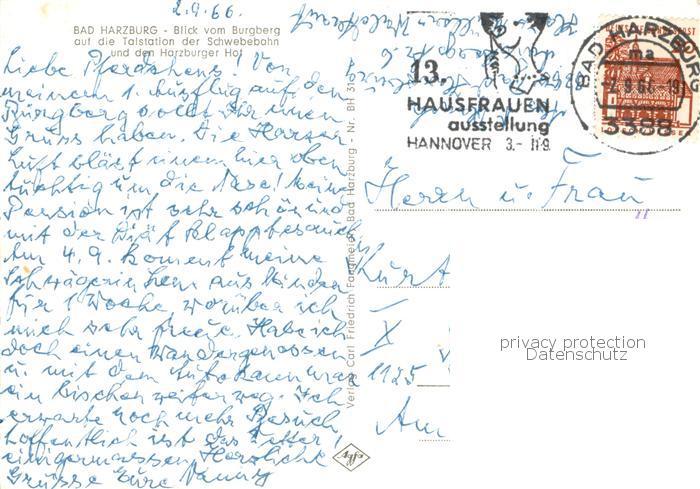 2.9.66.
BAD HARZBURG - Blick vom Burgberg
auf die Talstation der Schwebebahn
und den Harzburger Hof
Liebe ! Von
meinem 1. Ausflug auf den
Burgberg sollt Ihr einen
Gruss haben. Die Harzer
Luft bläst einem hier oben
tüchtig um die Nase! Meine
Pension ist sehr schön und
mit der Diät klappts auch.
Am 4.9. kommt meine
Schwägerin hier aus Minden
für 1 Woche, worüber ich
mich sehr freue. Habe ich
doch einen Wandergenossen
u. mit dem Auto kann man
ein bischen weiter weg. Ich
erwarte noch mehr Besuch
hoffentlich ist das Wetter
einigermassen. Herzliche
Grüsse Eure
Verlag Carl Friedrich Fangmeier, Bad Harzburg - Nr. BH 31
13.
HAUSFRAUEN
ausstellung
HANNOVER 3.- 11.9.
BAD HARZBURG
ma
-2.9.66.-19
3388
DEUTSCHE BUNDESPOST
Herrn u. Frau
Kurt
X
1125
Am
privacy protection
Datenschutz
Agfa